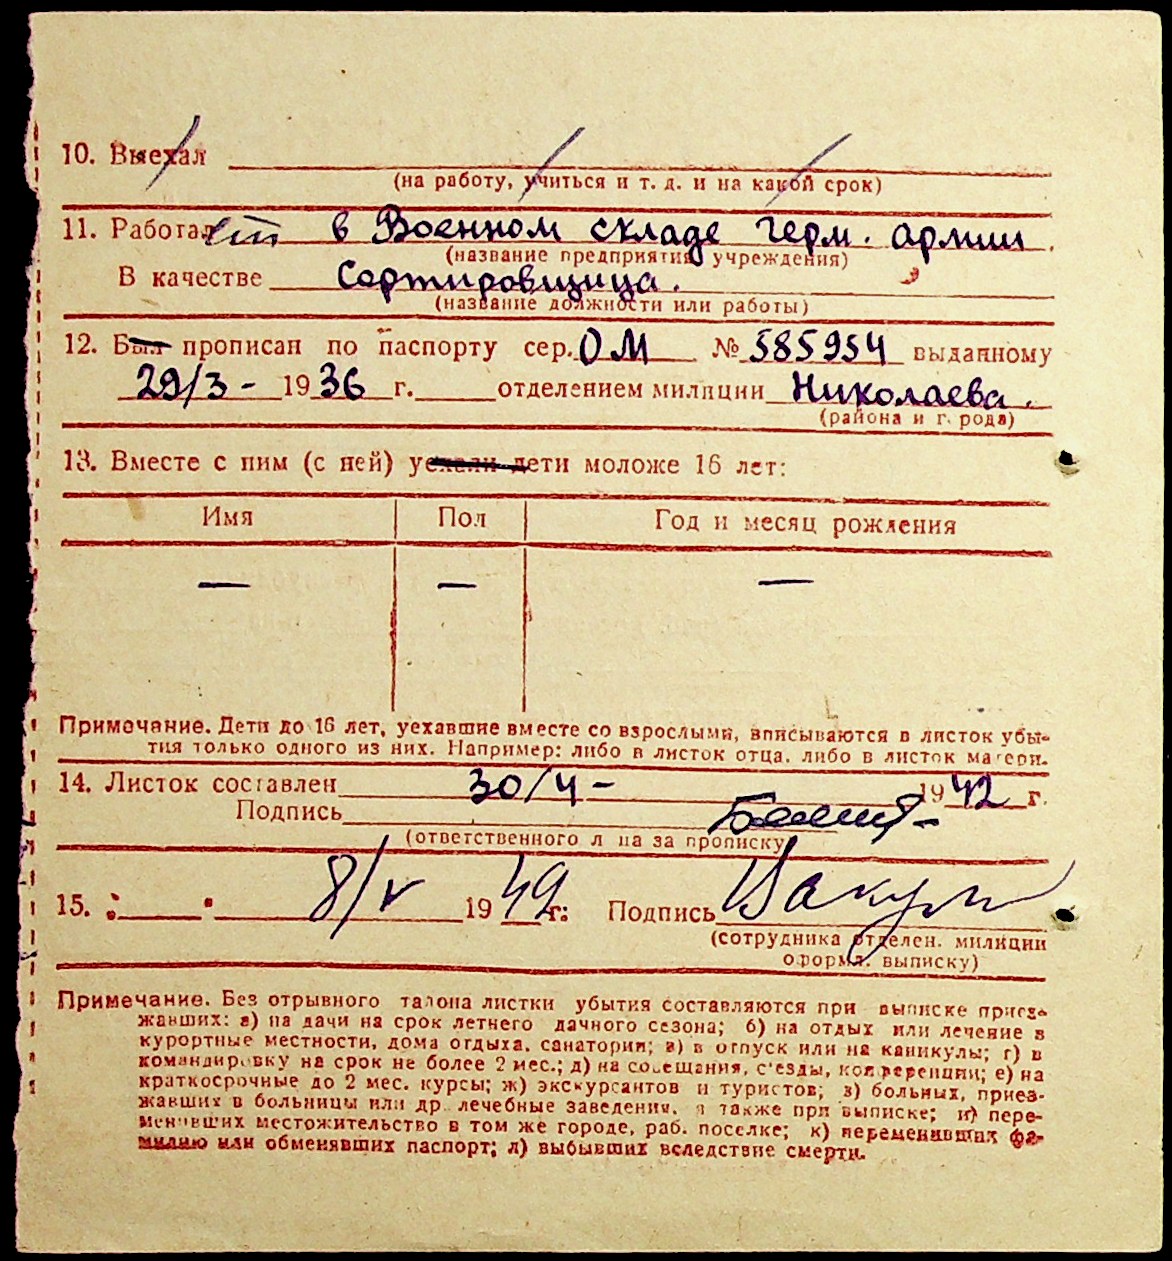 10. Выехал
(на работу, учиться и т. д. и на какой срок)
11. Работает в Военном складе герм. армии.
(название предприятия, учреждения)
В качестве Сортировщица.
(название должности или работы)
12. Был прописан по паспорту сер. ОМ № 585954 выданному
29/3 - 1936 г. отделением милиции Николаева.
(района и города)
13. Вместе с ним (с ней) уехали дети моложе 16 лет:
Имя Пол Год и месяц рождения
— — —
Примечание. Дети до 16 лет, уехавшие вместе со взрослыми, вписываются в листок убы-
тия только одного из них. Например: либо в листок отца, либо в листок матери.
14. Листок составлен 30/4 - 1942 г.
Подпись
(ответственного лица за прописку
15. 8/V 1942 г. Подпись
(сотрудника отделен. милиции
оформл. выписку)
Примечание. Без отрывного талона листки убытия составляются при выписке приез-
жавших: а) на дачи на срок летнего дачного сезона; б) на отдых или лечение в
курортные местности, дома отдыха, санатории; в) в отпуск или на каникулы; г) в
командировку на срок не более 2 мес.; д) на совещания, с'езды, конференции; е) на
краткосрочные до 2 мес. курсы; ж) экскурсантов и туристов; з) больных, приез-
жавших в больницы или др. лечебные заведения, а также при выписке; и) пере-
менивших местожительство в том же городе, раб. поселке; к) переменивших фа-
милию или обменявших паспорт; л) выбывших вследствие смерти.